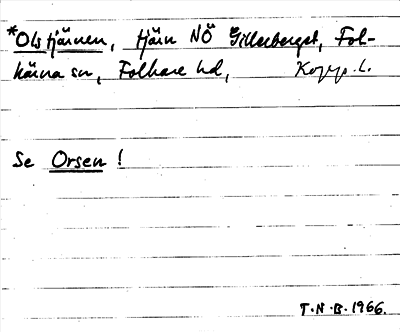 *Olstjärnen, tjärn NÖ Gillerberget, Fol-
kärna sn, Folkare hd, Kopp. l.
Se Orsen !
T.N.B. 1966.